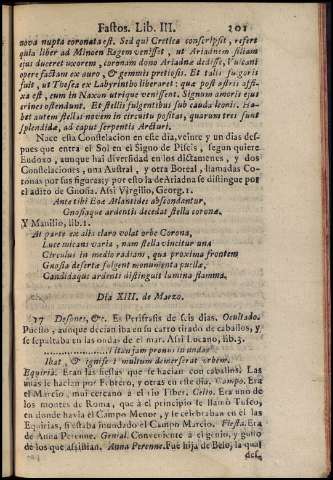 Fastos. Lib. III. 201
nova nupta coronata est. Sed qui Cretica conscripsit, refert
quia liber ad Minoen Regem venisset, ut Ariadnem filiam
ejus duceret uxorem, coronam dono Ariadnæ dedisse, Vulcani
opere factam ex auro, & gemmis pretiosis. Et talis fulgoris
fuit, ut Theseum ex Labyrintho liberaret: quæ post astris affi-
xa est, cum in Naxon utrique venissent. Signum amoris ejus
crines ostendunt. Et stellis fulgentibus sub cauda leonis. Ha-
bet autem stellas novem in circuitu positas, quarum tres sunt
splendidæ, ad caput serpentis Arcturi.
Nace esta Constelacion en este dia, veinte y un dias des-
pues que entra el Sol en el Signo de Piscis, segun quiere
Eudoxo, aunque hai diversidad en los dictamenes, y dos
Constelaciones, una Austral, y otra Boreal, llamadas Co-
ronas por sus figuras; y por esto la de Ariadna se distingue por
el adito de Gnosia. Assi Virgilio, Georg. 1.
Ante tibi Eoæ Atlantides abscondantur,
Gnosiaque ardentis decedat stella coronæ.
Y Manilio, lib. 1.
At parte ex alia claro volat orbe Corona,
Luce micans varia, nam stella vincitur una
Circulus in medio radians, quæ proxima frontem
Gnosia desertæ fulgent monumenta puellæ,
Candidaque ardenti distinguit lumina flamma.
Dia XIII. de Marzo.
17 Desinet, &c. Es Perifrasis de seis dias. Ocultado.
Puesto, aunque decian iba en su carro tirado de caballos, y
se sepultaba en las ondas de el mar. Assi Lucano, lib. 3.
Titan jam pronus in undas
Ibat, & ignifero multum demerserat orbem.
Equiria. Eran las fiestas que se hacian con caballos. Las
unas se hacian por Febrero, y otras en este dia. Campo. Era
el Marcio, mui cercano a el rio Tiber. Celio. Era uno de
los montes de Roma, que à el principio se llamò Tusco,
en donde havia el Campo Menor, y se celebraban en el las
Equirias, si estaba inundado el Campo Marcio. Fiesta. Era
de Anna Perenne. Genial. Conveniente à el genio, y gusto
de los que assistian. Anna Perenne. Fue hija de Belo, la qual
des-